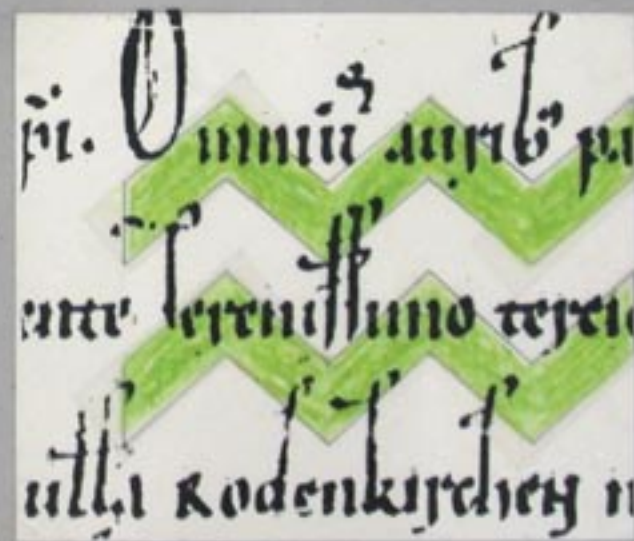 pi. Omniū aurib; pa
ente Serenissimo tercio
uilla Rodenkirchen